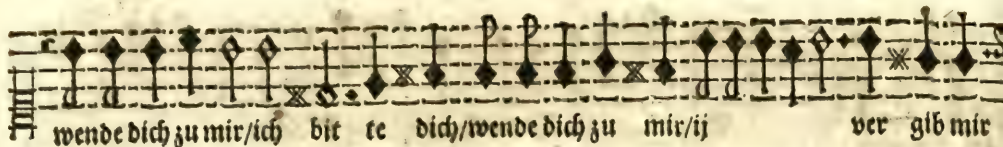 wende dich zu mir/ich bit te dich/wende dich zu mir/ij ver gib mir